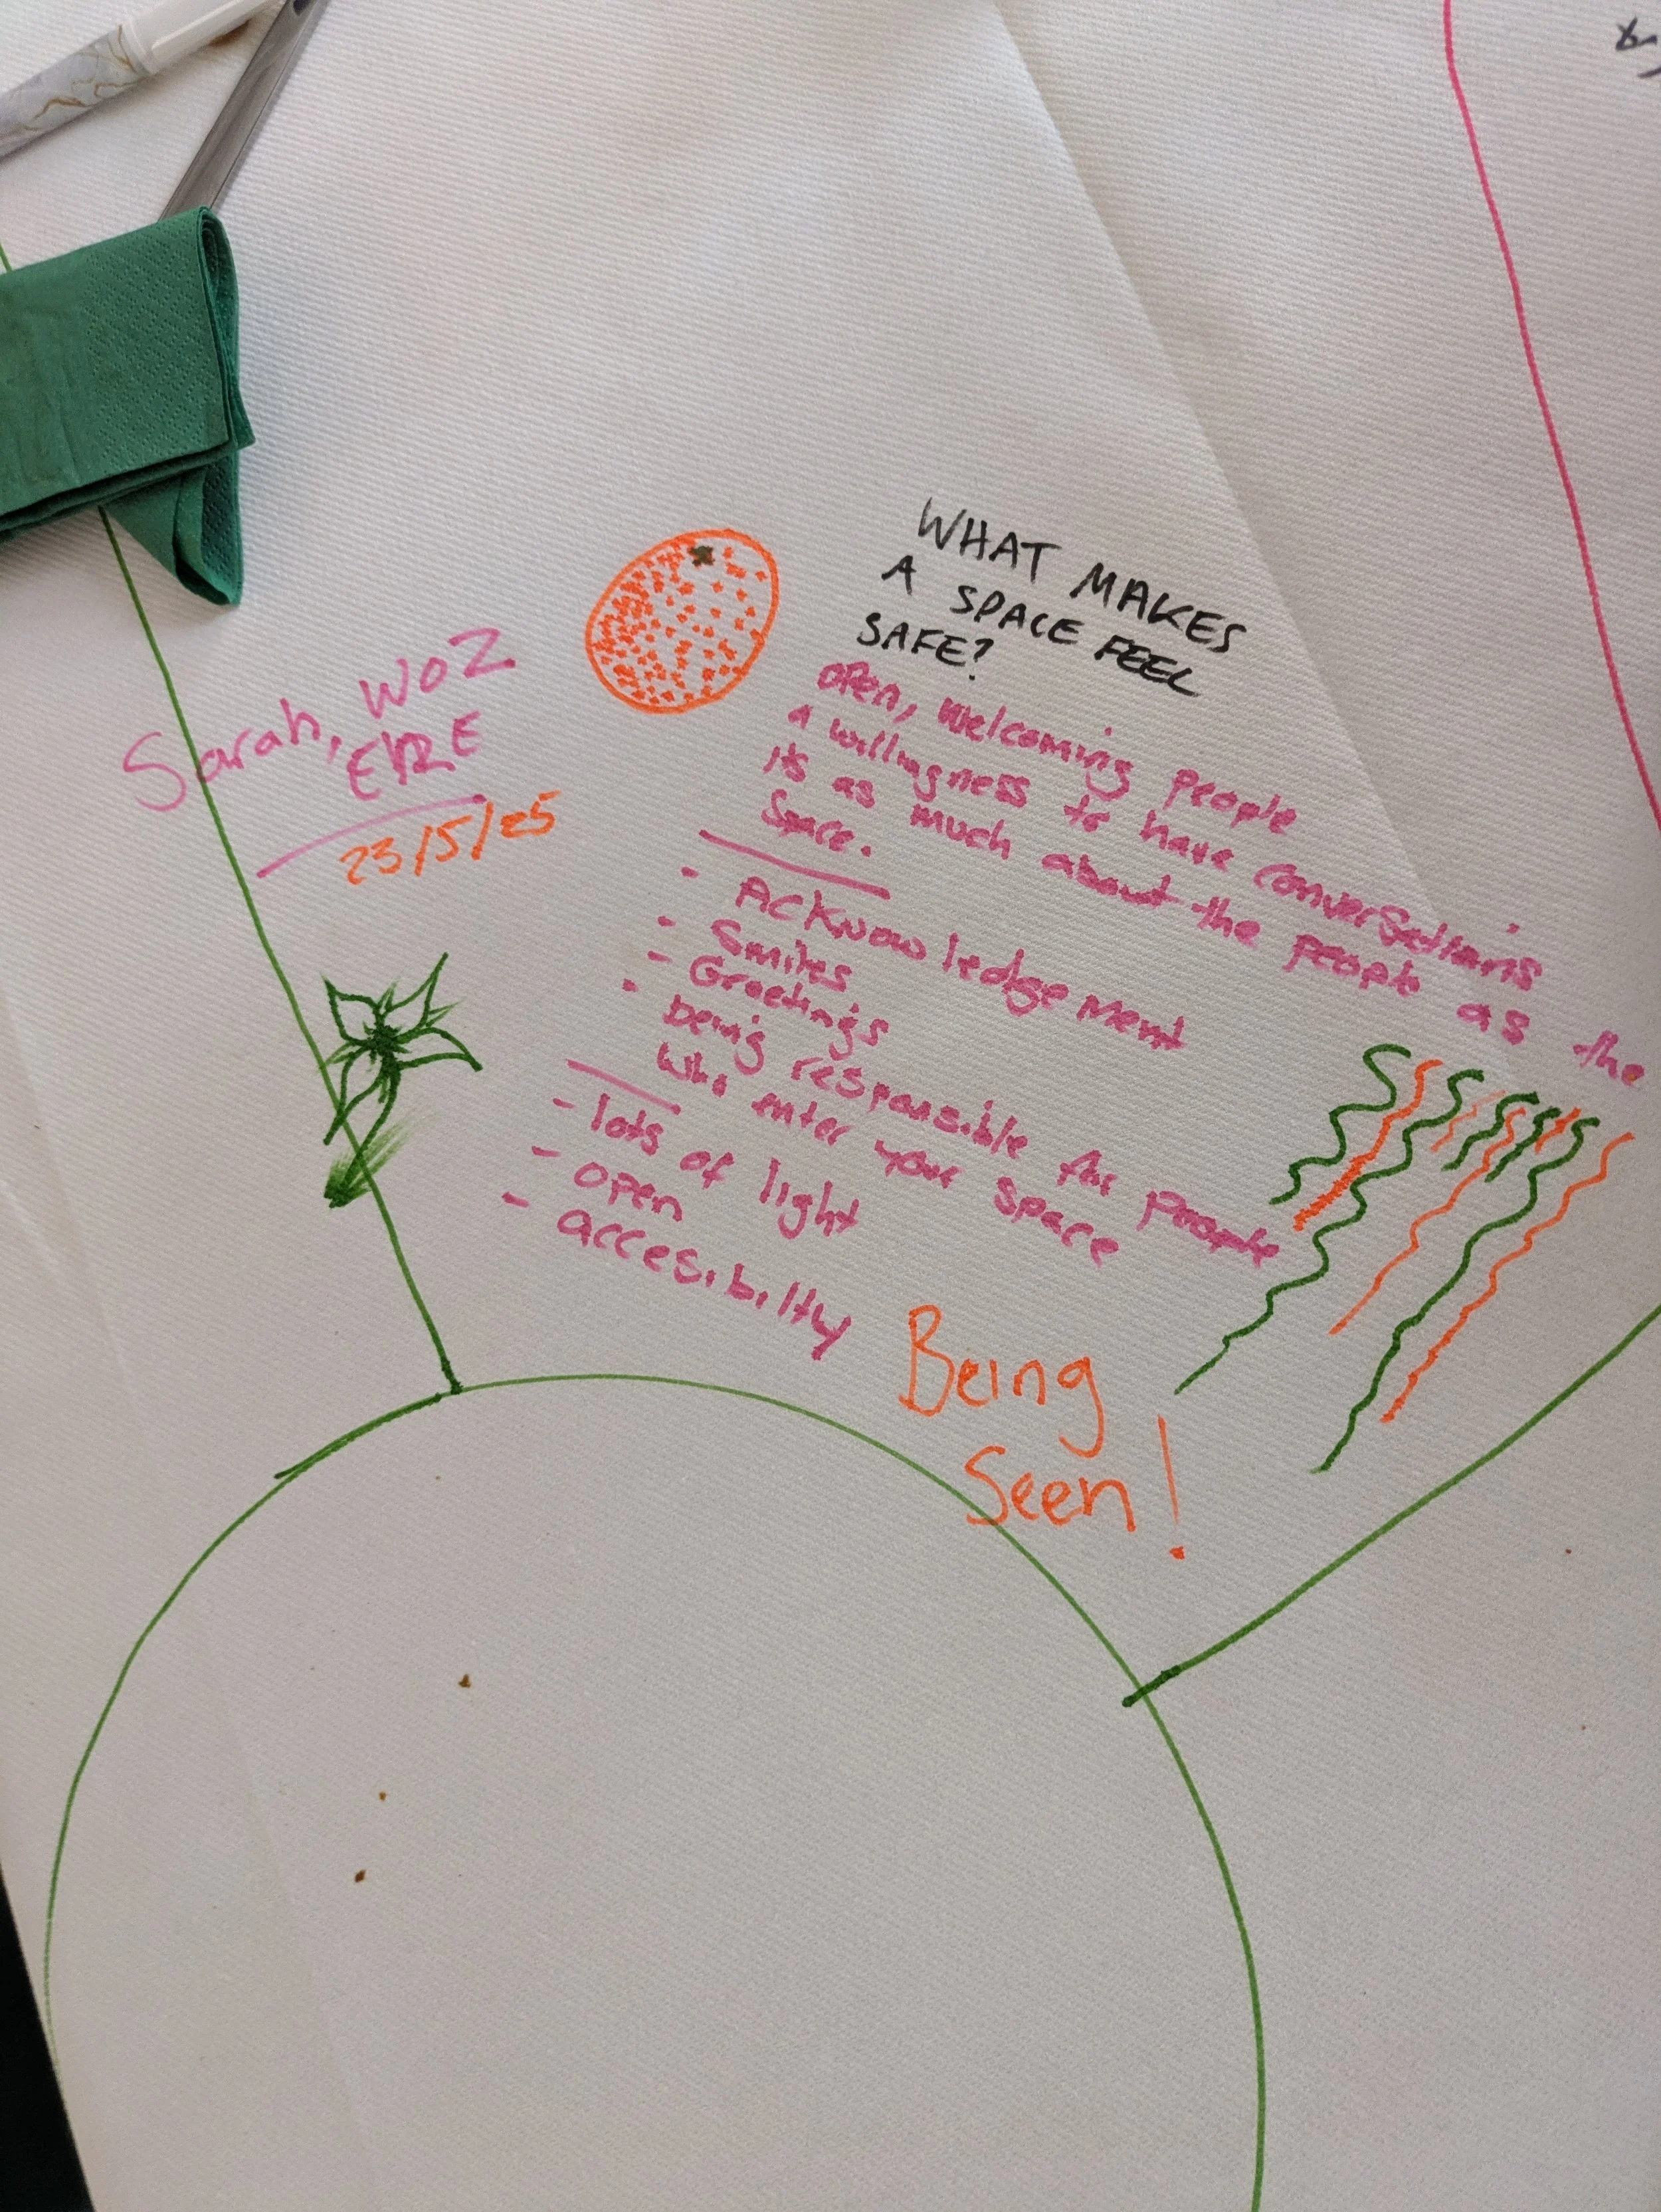 WHAT MAKES
A SPACE FEEL
SAFE?
open, welcoming people
a willingness to have conversations
its as much about the people as the
space.
- Acknowledgement
- Smiles
- Greetings
- being responsible for people
who enter your space
- lots of light
- open
- accesibilty
Being
Seen!
Sarah, WOZ
ERE
23/5/25